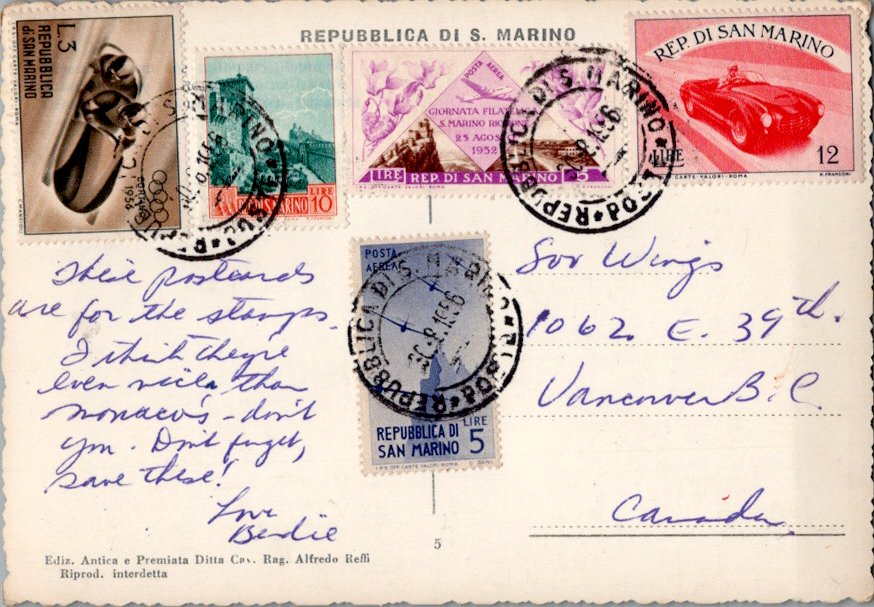 REPUBBLICA DI S. MARINO
L.3
REPUBBLICA
di SAN MARINO
1956
LIRE
10
POSTA AEREA
GIORNATA FILATELICA
S. MARINO RICCIONE
25 AGOSTO
1952
LIRE REP. DI SAN MARINO 5
REP. DI SAN MARINO
LIRE 12
CARTE VALORI - ROMA
R. FRANZONI
REPUBBLICA DI S. MARINO
8.1956
POSTA
AEREA
REPUBBLICA DI
SAN MARINO
LIRE
5
I.P.S. OFF. CARTE VALORI - ROMA
These postcards
are for the stamps.
I think they're
even nicer than
Monaco's - don't
you. Don't forget,
save these!
Love
Wings
1062 E. 39th.
Vancouver B.C.
Canada
5
Ediz. Antica e Premiata Ditta Cav. Rag. Alfredo Reffi
Riprod. interdetta